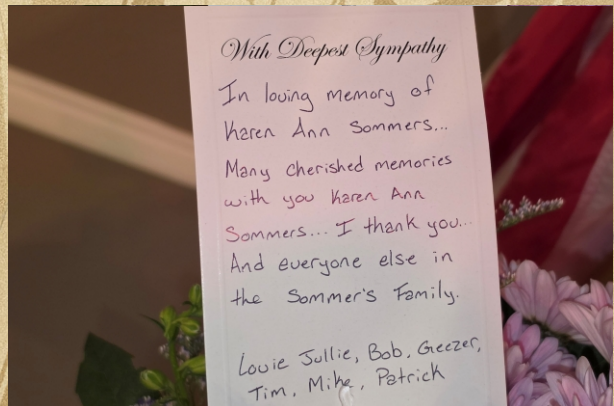 With Deepest Sympathy
In loving memory of
Karen Ann Sommers...
Many cherished memories
with you Karen Ann
Sommers... I thank you...
And everyone else in
the Sommer's Family.
Louie Jullie, Bob, Geezer,
Tim, Mike, Patrick